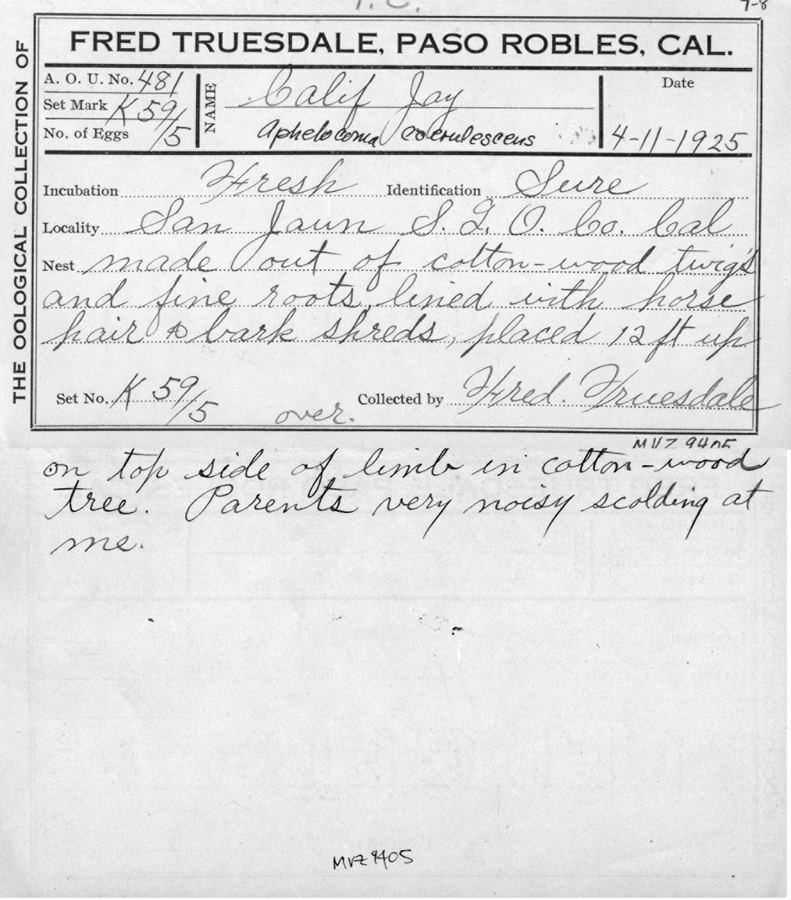 T.C.
FRED TRUESDALE, PASO ROBLES, CAL.
THE OOLOGICAL COLLECTION OF
A. O. U. No. 481
Set Mark K 59/5
No. of Eggs
NAME
Calif Jay
Aphelocoma coerulescens
Date
4-11-1925
Incubation Fresh Identification Sure
Locality San Jaun S. L. O. Co. Cal
Nest made out of cotton-wood twigs
and fine roots, lined with horse
hair & bark shreds, placed 12 ft up
Set No. K 59/5 over. Collected by Fred. Truesdale
MVZ 9405
on top side of limb in cotton-wood
tree. Parents very noisy scolding at
me.
MVZ 9405